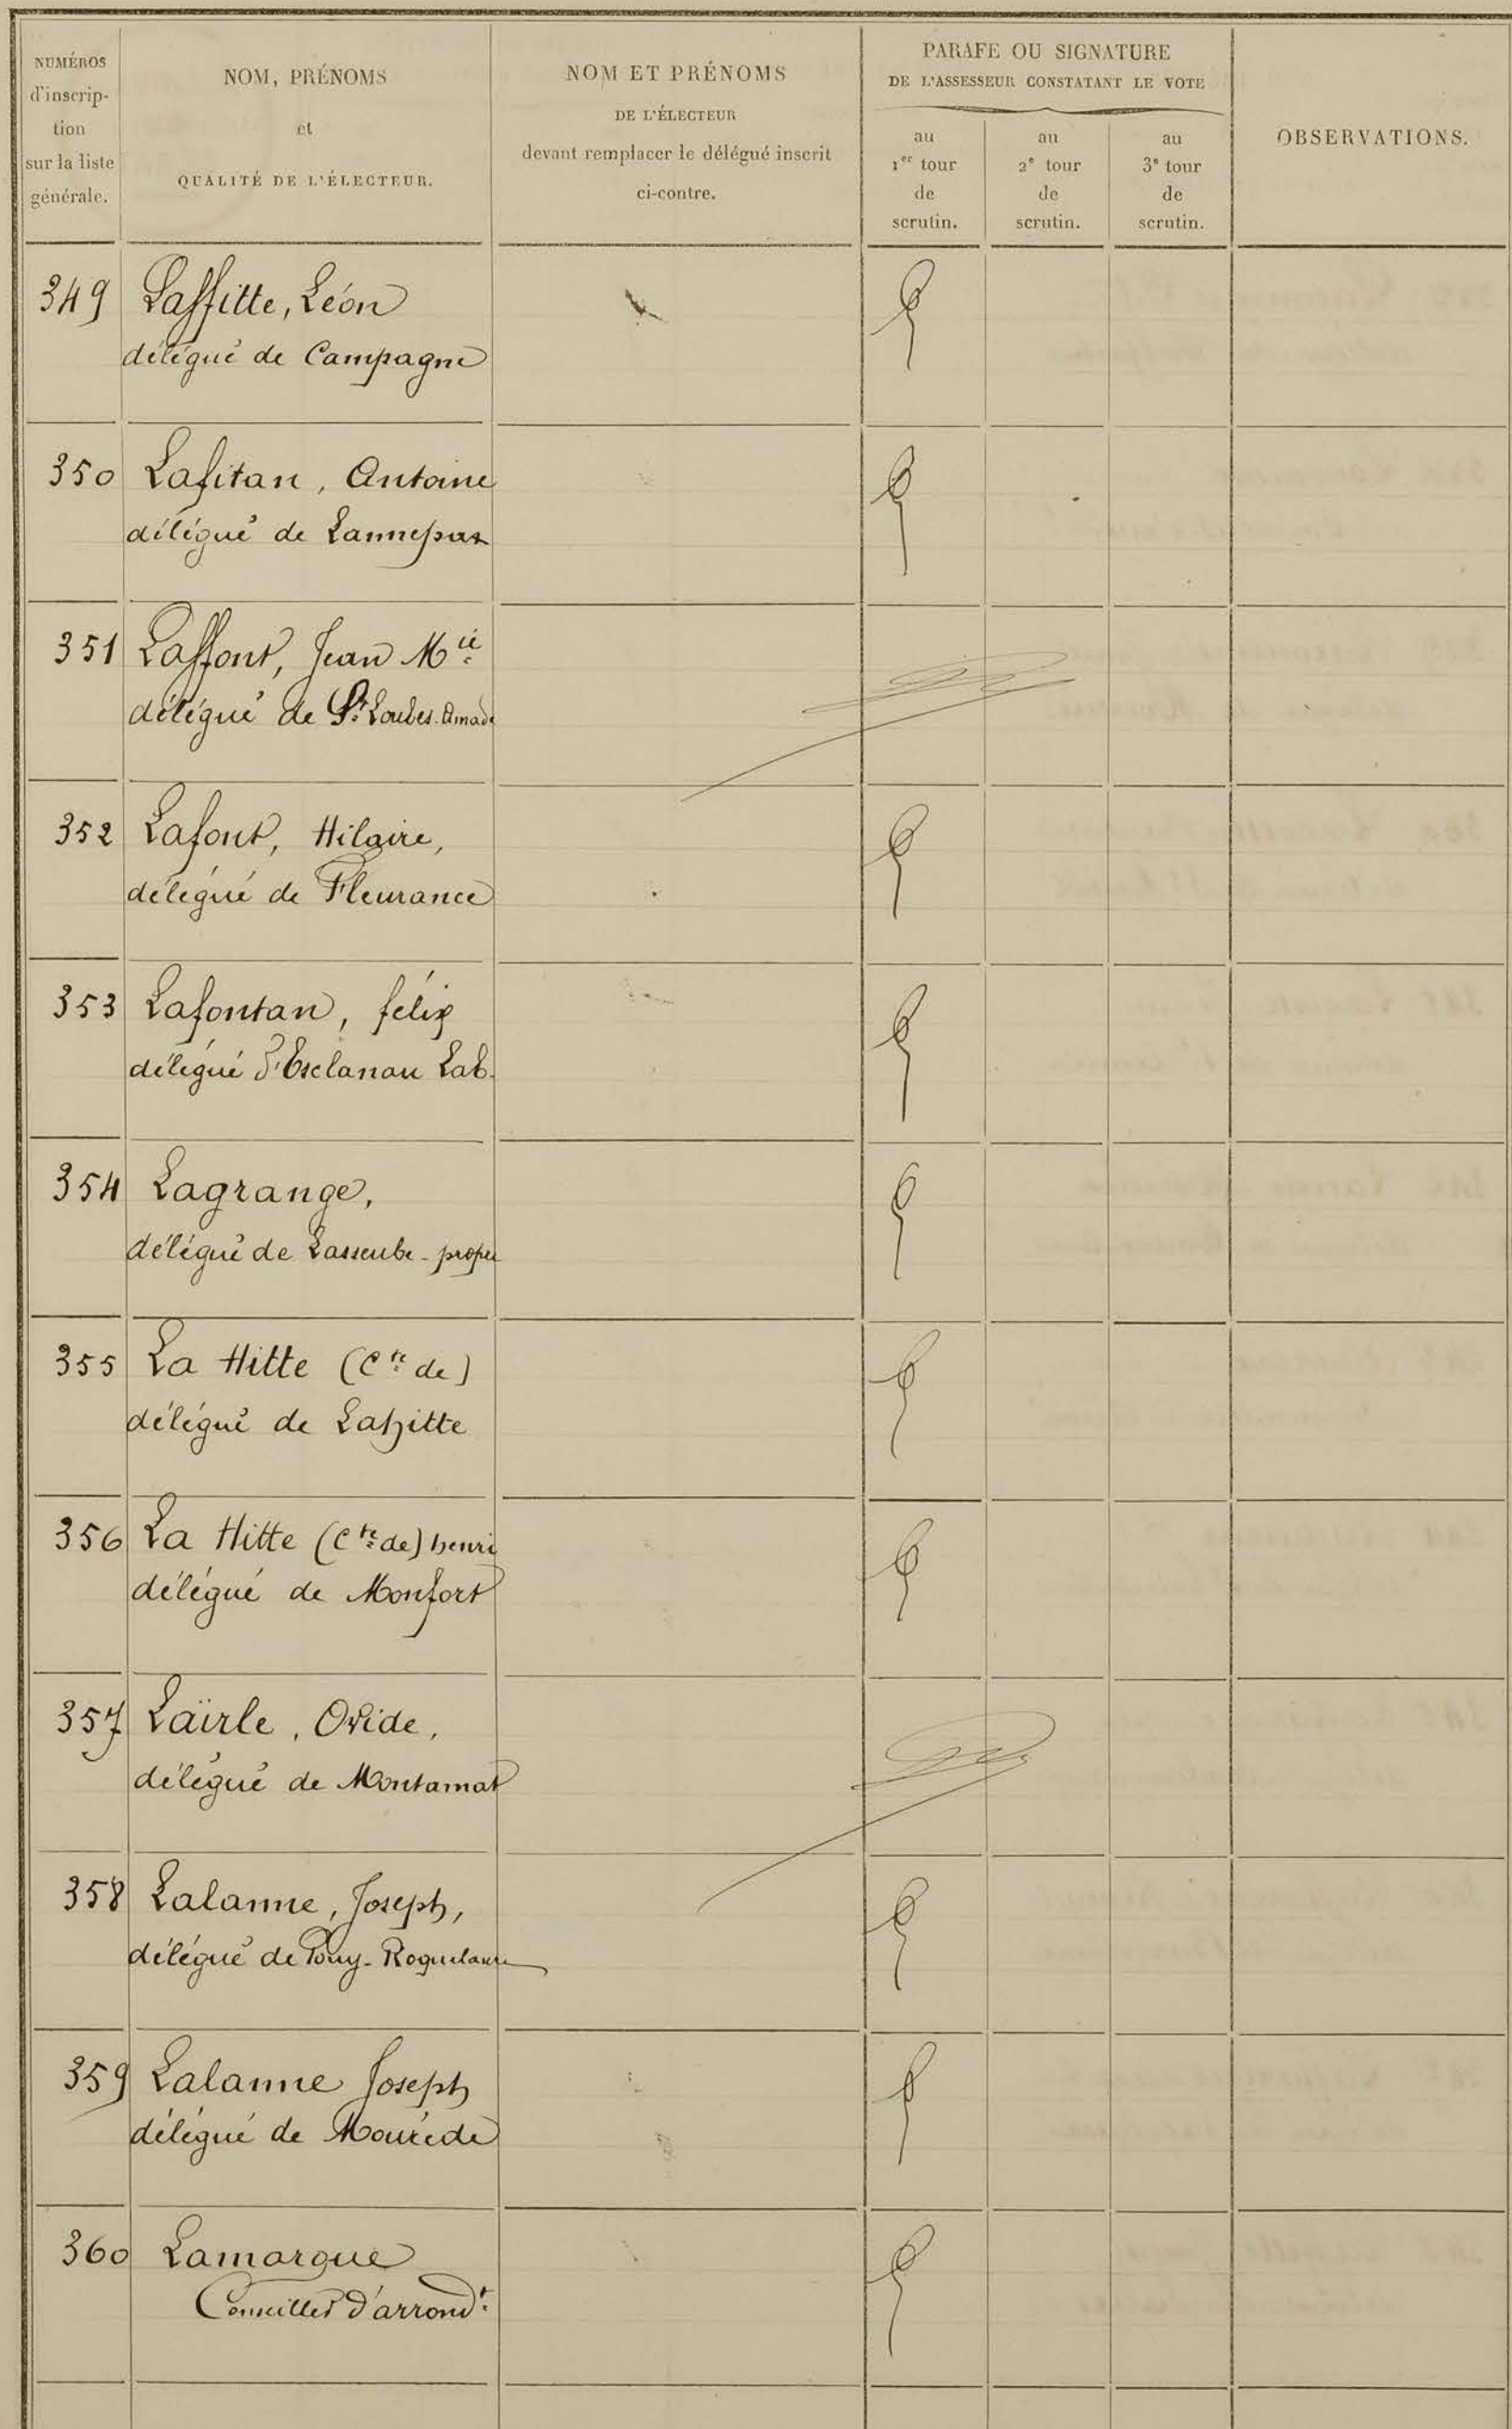 NUMÉROS
d'inscrip-
tion
sur la liste
générale.
NOM, PRÉNOMS
et
QUALITÉ DE L'ÉLECTEUR.
NOM ET PRÉNOMS
DE L'ÉLECTEUR
devant remplacer le délégué inscrit
ci-contre.
PARAFE OU SIGNATURE
DE L'ASSESSEUR CONSTATANT LE VOTE
au
1er tour
de
scrutin.
au
2e tour
de
scrutin.
au
3e tour
de
scrutin.
OBSERVATIONS.
349 Laffitte, Léon
délégué de Campagne
350 Lafitan, Antoine
délégué de Lannepax
351 Laffont, Jean Mie
délégué de St Loubes-Amade
352 Lafont, Hilaire,
délégué de Fleurance
353 Lafontan, félix
délégué d'Esclanau Lab.
354 Lagrange,
délégué de Lasseube-propre
355 La Hitte (Cte de)
délégué de Lahitte
356 La Hitte (Cte de) henri
délégué de Monfort
357 Laïrle, Ovide,
délégué de Montamat
358 Lalanne, Joseph,
délégué de Pouy-Roquelaure
359 Lalanne Joseph
délégué de Mourède
360 Lamargue
Conseiller d'arrondt